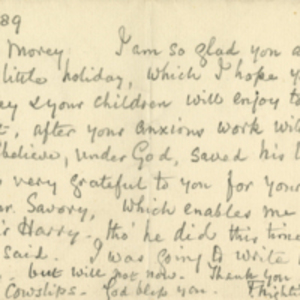 89
Morey I am so glad you a
little holiday, which I hope y
ey & your children will enjoy to
t, after your anxious work wit
believe, under God, saved his l
s very grateful to you for your
r. Savory, which enables me
r Harry. tho' he did this time
said. I was going to write
but will not now. Thank you
Cowslips. God bless you. F Night